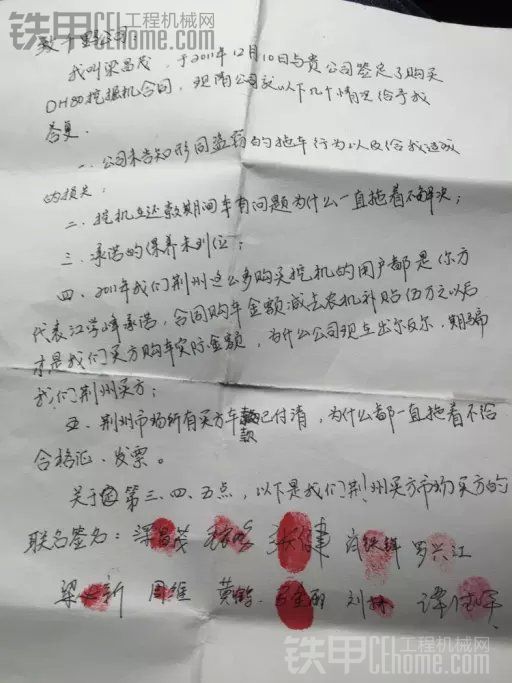 铁甲工程机械网
CEhome.com
我叫梁昌茂,于2011年12月10日与贵公司签定了购买
DH80挖掘机合同,现请公司就以下几个情况给予我
答复.
一.公司未告知形同盗窃的拖车行为以及给我造成
的损失;
二.挖机在还款期间车有问题为什么一直拖着不解决;
三.承诺的保养未到位;
四.2011年我们荆州这么多购买挖机的用户都是你方
代表江学峰承诺,合同购车金额减去农机补贴伍万元以后
才是我们买方购车实际金额,为什么公司现在出尔反尔,欺骗
我们荆州买方;
五.荆州市场所有买方车款已付清,为什么都一直拖着不给
款
合格证、发票。
关于第三、四、五点,以下是我们荆州买方市场买方的
联名签名:梁昌茂 罗兴江
周维 黄鹤 刘林
铁甲工程机械网
CEhome.com